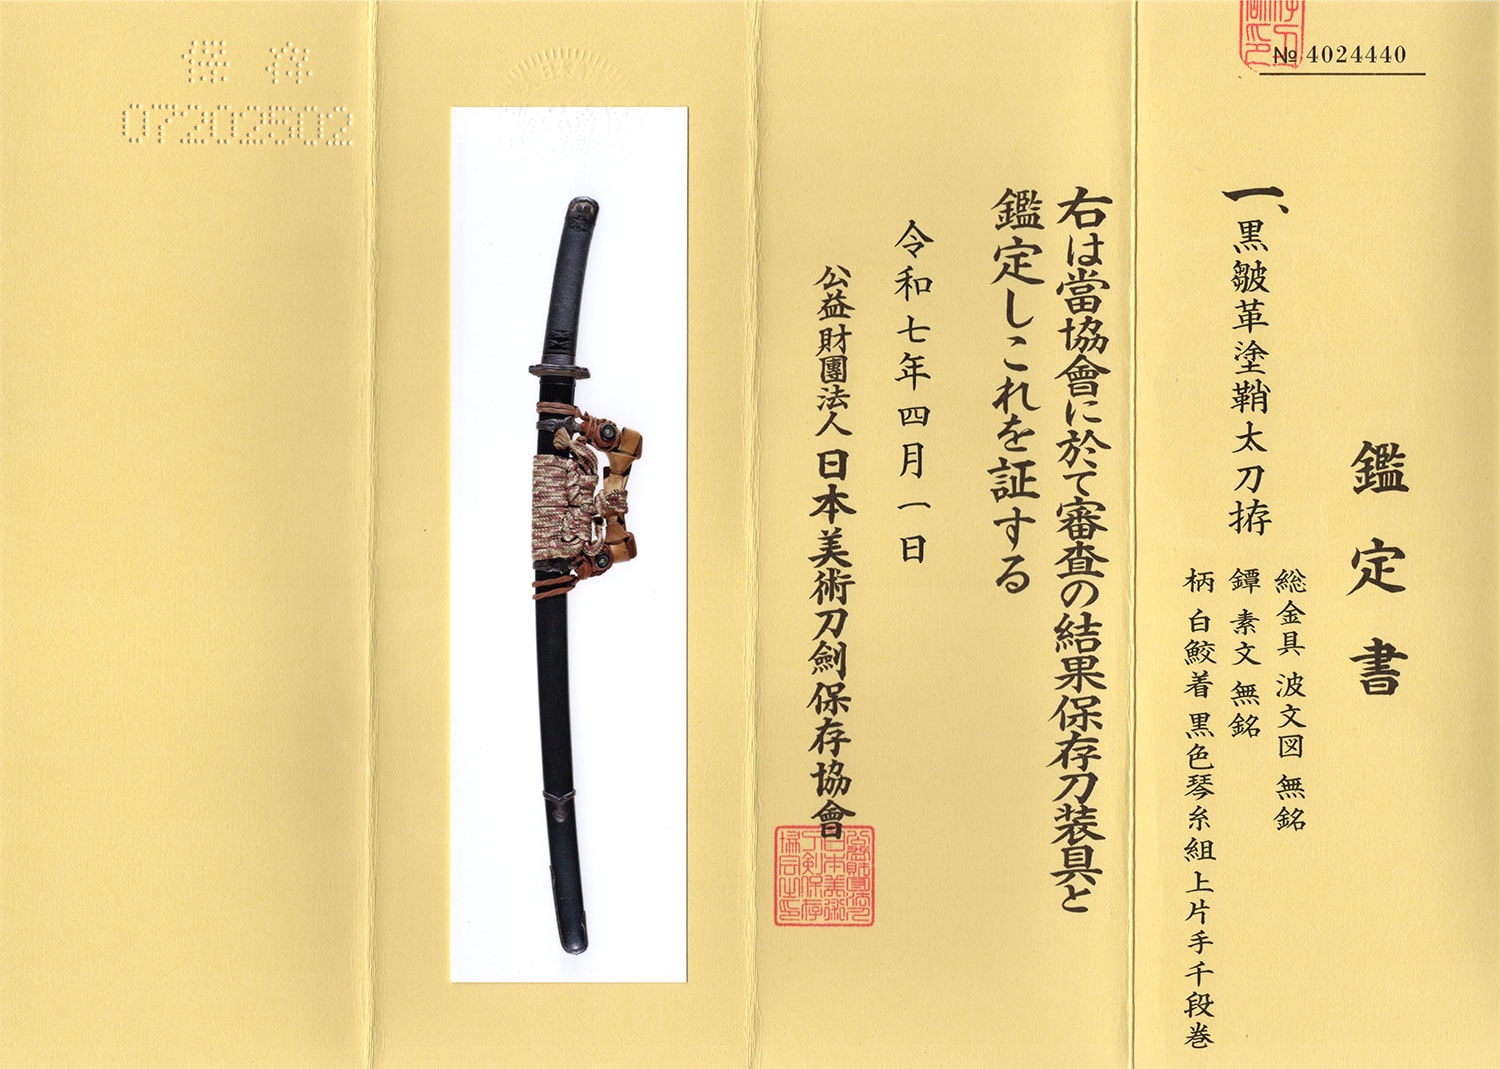 № 4024440
鑑定書
一、黒皺革塗鞘太刀拵
総金具 波文図 無銘
鐔 素文 無銘
柄 白鮫着 黒色琴糸組上片手千段巻
右は當協會に於て審査の結果保存刀装具と
鑑定しこれを証する
令和七年四月一日
公益財團法人 日本美術刀劍保存協會
保存
07202502